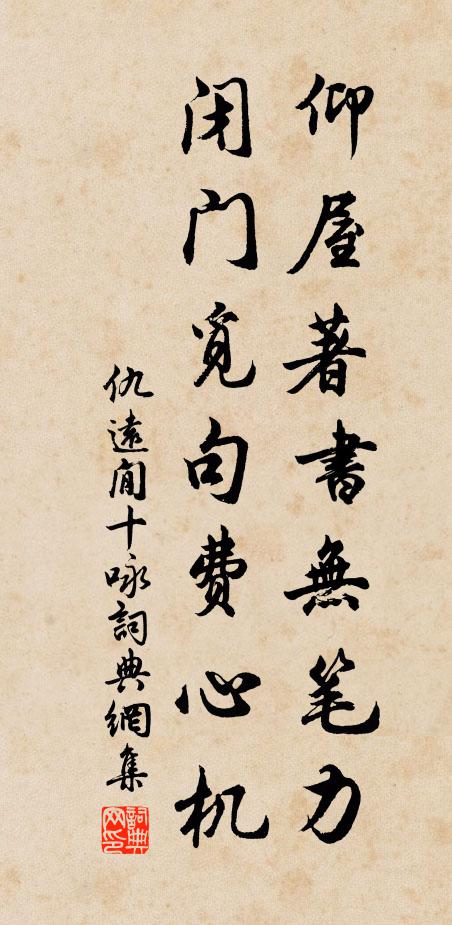 仰屋著書無笔力
闭门觅句费心机
仇遠閒十咏詞典網集
詞典网印